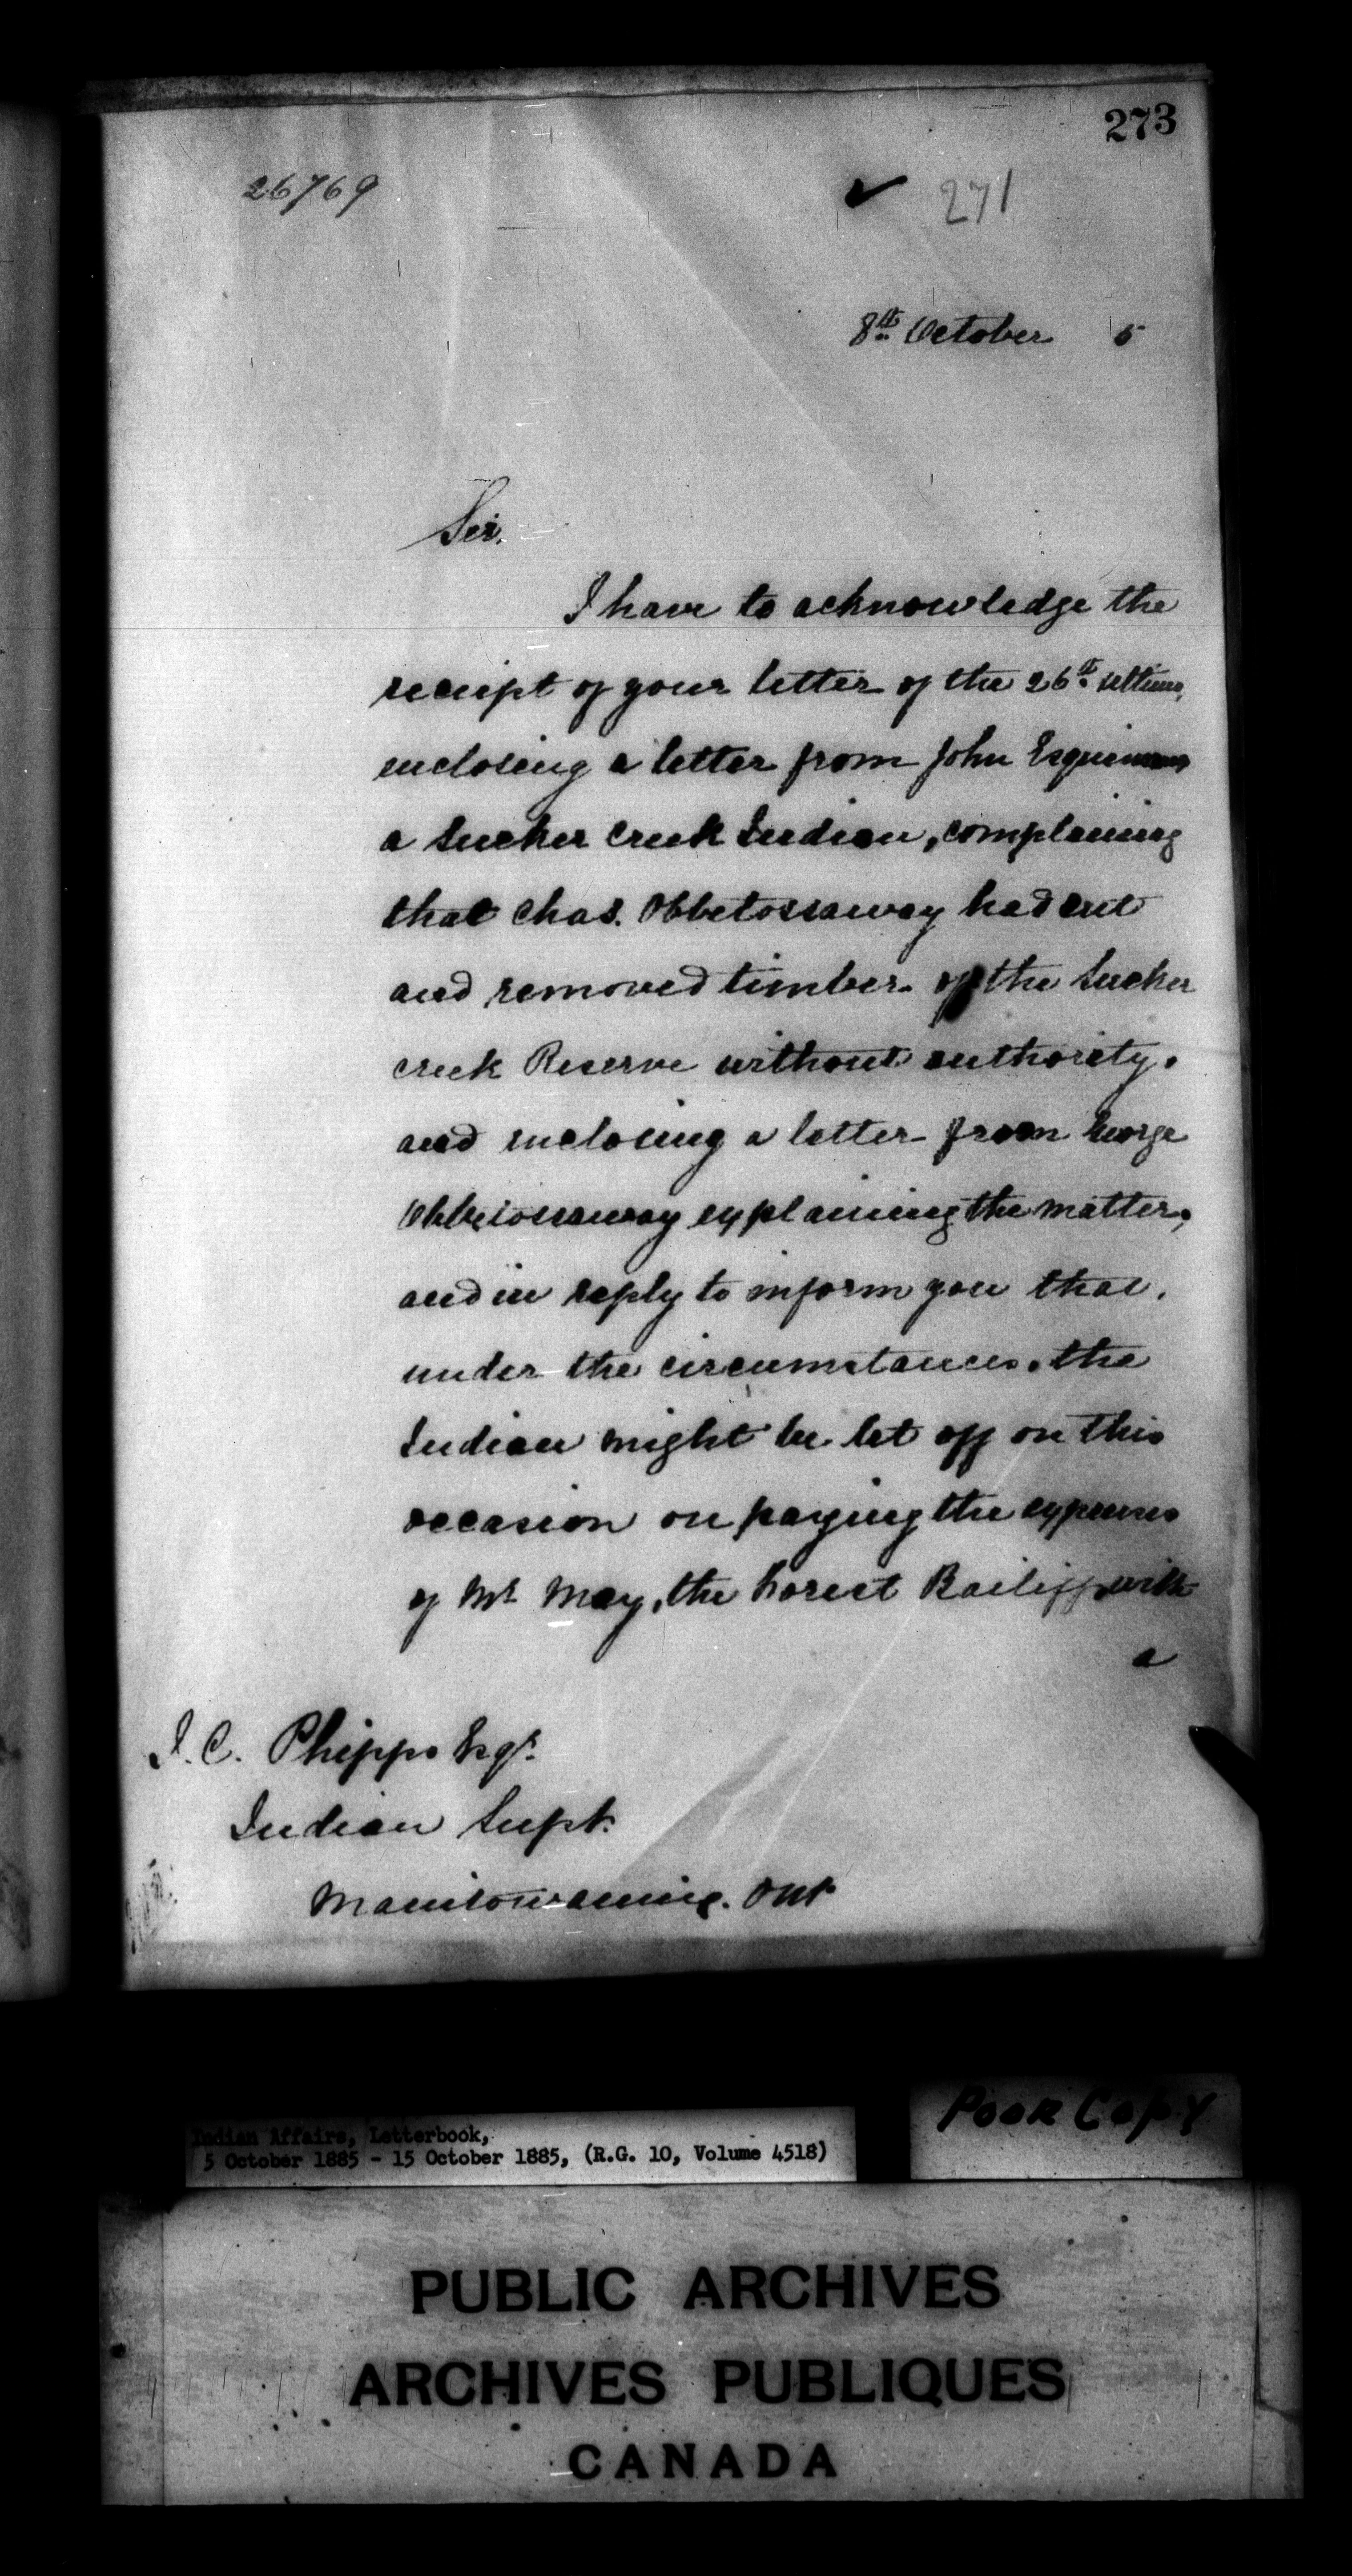 273
26769
✓ 271
8th October 5
Sir,
I have to acknowledge the
receipt of your letter of the 26th ultimo,
enclosing a letter from John
a Sucker Creek Indian, complaining
that Chas. Obbetossaway had cut
and removed timber of the Sucker
Creek Reserve without authority,
and enclosing a letter from George
Obbetossaway explaining the matter,
and in reply to inform you that,
under the circumstances, the
Indian might be let off on this
occasion on paying the expenses
of Mr May, the Forest Bailiff, with
a
J. C. Phipps Esqr.
Indian Supt.
Manitowaning. Ont
Poor Copy
Indian Affairs, Letterbook,
5 October 1885 - 15 October 1885, (R.G. 10, Volume 4518)
PUBLIC ARCHIVES
ARCHIVES PUBLIQUES
CANADA